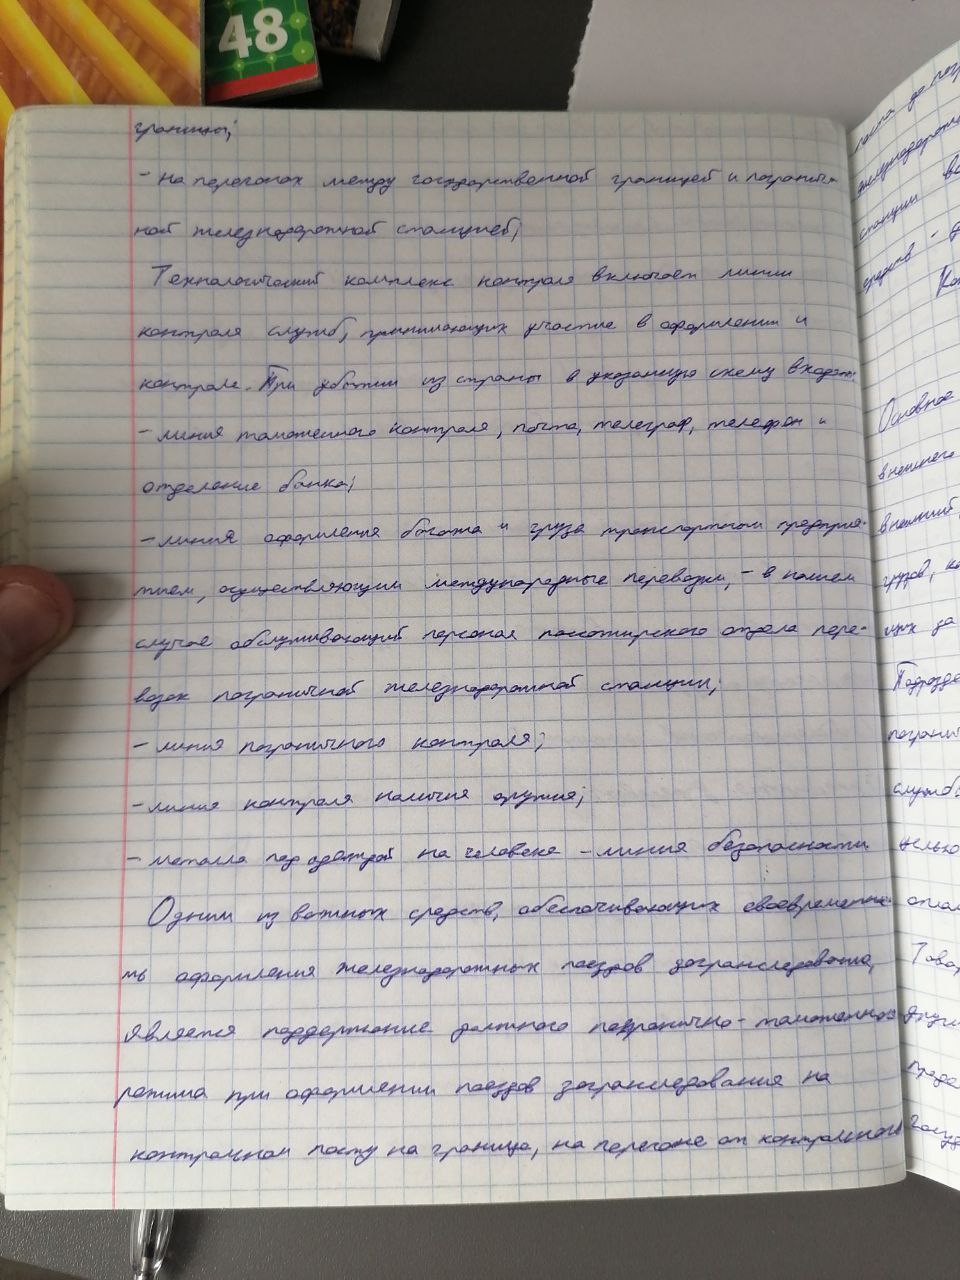 48
границы;
- на перегонах между государственной границей и погранич-
ной железнодорожной станцией;
Технологический комплекс контроля включает линии
контроля служб, принимающих участие в оформлении и
контроле. При убытии из страны в указанную схему входят:
- линия таможенного контроля, почта, телеграф, телефон и
отделение банка;
- линия оформления багажа и груза транспортным предприя-
тием, осуществляющим международные перевозки, - в нашем
случае обслуживающий персонал пассажирского отдела пере-
возок пограничной железнодорожной станции;
- линия пограничного контроля;
- линия контроля наличия оружия;
- металла под одеждой на человеке - линия безопасности.
Одним из важных средств, обеспечивающих своевременнос-
ть оформления железнодорожных поездов загранследования,
является поддержание должного погранично-таможенного
режима при оформлении поездов загранследования на
контрольном посту на границе, на перегоне от контрольного
поста до
железнодорожн
станции
средств -
Основное
внешнего
внешний
грузов,
щих за
Подразде
погранич
служб
целью
Това
други
преде
госуд